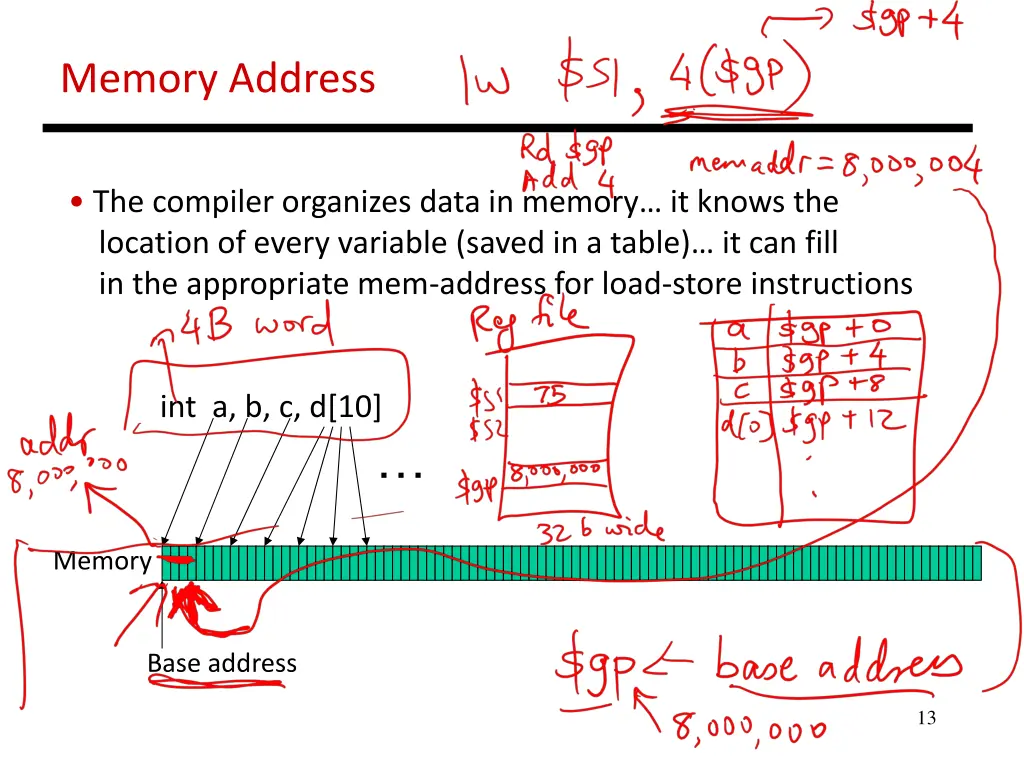 $gp + 4
Memory Address
lw $s1, 4($gp)
Rd $gp
Add 4
memaddr = 8,000,004
• The compiler organizes data in memory… it knows the
location of every variable (saved in a table)… it can fill
in the appropriate mem-address for load-store instructions
4B word
Reg file
a $gp + 0
b $gp + 4
c $gp + 8
d[0] $gp + 12
.
.
int a, b, c, d[10]
$s1 75
$s2
$gp 8,000,000
32 b wide
addr
8,000,000
…
Memory
Base address
$gp ← base address
8,000,000
13